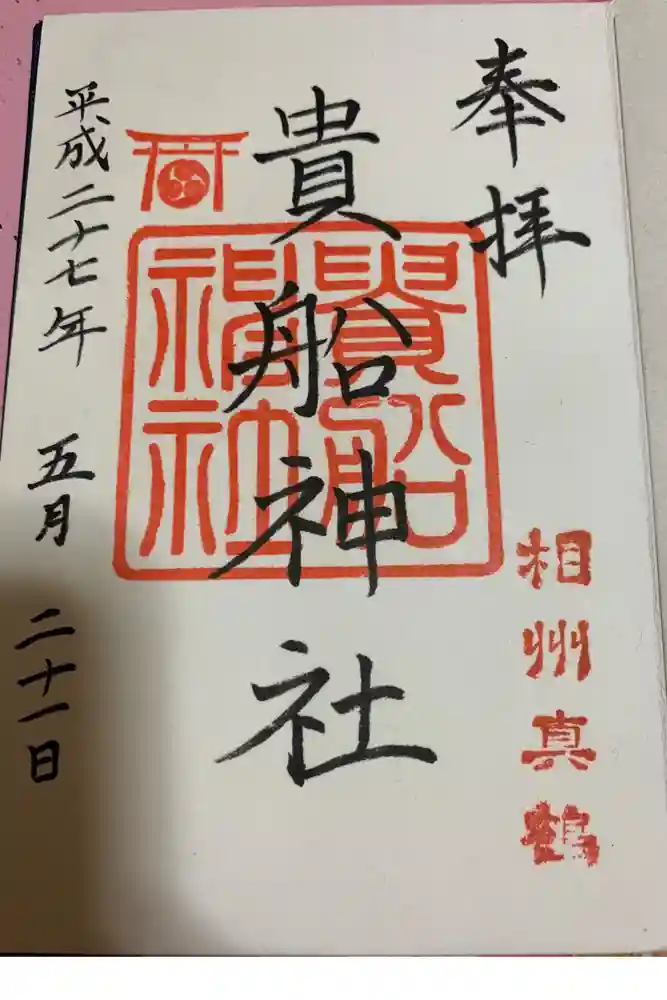 奉拝
相州真鶴
貴船神社
貴船神社
平成二十七年 五月 二十一日